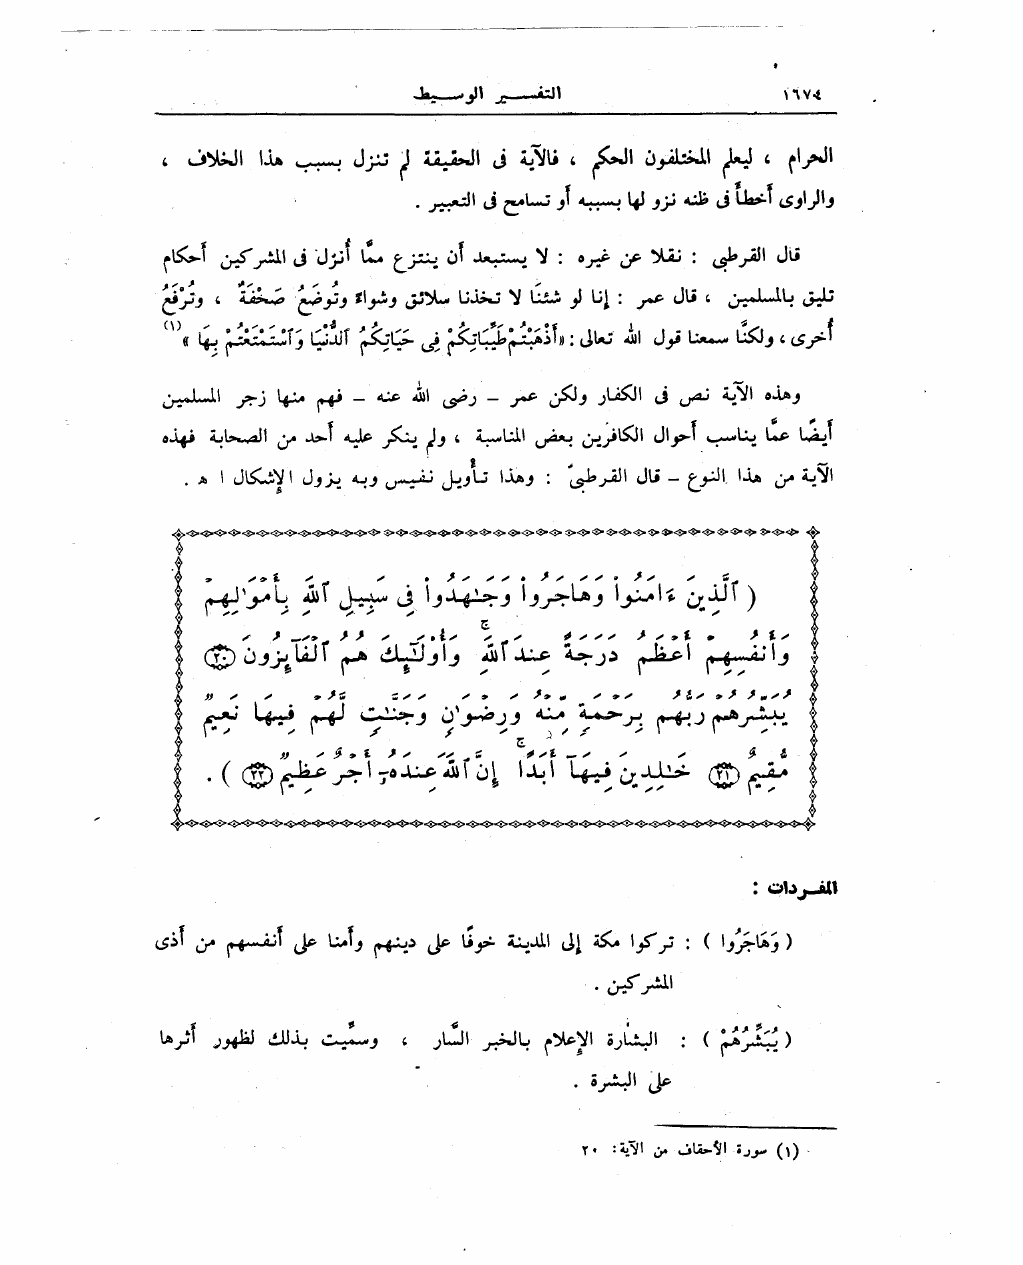 ١٦٧٤ التفسير الوسيط
الحرام ، ليعلم المختلفون الحكم ، فالآية فى الحقيقة لم تنزل بسبب هذا الخلاف ،
والراوى أخطأ فى ظنه نزو لها بسببه أو تسامح فى التعبير .
قال القرطبى : نقلا عن غيره : لا يستبعد أن ينتزع ممَّا أُنزل فى المشركين أحكام
تليق بالمسلمين ، قال عمر : إنا لو شئنَا لا تخذنا سلائق وشواءً وتُوضَعُ صَحْفَةٌ ، وتُرْفَعُ
أُخرى ، ولكنَّا سمعنا قول الله تعالى : «أَذْهَبْتُمْ طَيِّبَاتِكُمْ فِى حَيَاتِكُمُ ٱلدُّنْيَا وَٱسْتَمْتَعْتُمْ بِهَا » (١)
وهذه الآية نص فى الكفار ولكن عمر – رضى الله عنه – فهم منها زجر المسلمين
أيضًا عمَّا يناسب أحوال الكافرين بعض المناسبة ، ولم ينكر عليه أحد من الصحابة فهذه
الآية من هذا النوع – قال القرطبىّ : وهذا تأويل نفيس وبه يزول الإشكال ا هـ .
( ٱلَّذِينَ ءَامَنُوا۟ وَهَاجَرُوا۟ وَجَـٰهَدُوا۟ فِى سَبِيلِ ٱللَّهِ بِأَمْوَٰلِهِمْ
وَأَنفُسِهِمْ أَعْظَمُ دَرَجَةً عِندَ ٱللَّهِ ۚ وَأُو۟لَـٰٓئِكَ هُمُ ٱلْفَآئِزُونَ ۝٢٠
يُبَشِّرُهُمْ رَبُّهُم بِرَحْمَةٍ مِّنْهُ وَرِضْوَٰنٍ وَجَنَّـٰتٍ لَّهُمْ فِيهَا نَعِيمٌ
مُّقِيمٌ ۝٢١ خَـٰلِدِينَ فِيهَآ أَبَدًا ۚ إِنَّ ٱللَّهَ عِندَهُۥٓ أَجْرٌ عَظِيمٌ ۝٢٢ ) .
المفردات :
( وَهَاجَرُوا ) : تركوا مكة إلى المدينة خوفًا على دينهم وأمنا على أنفسهم من أذى
المشركين .
( يُبَشِّرُهُمْ ) : البشارة الإعلام بالخبر السَّار ، وسمِّيت بذلك لظهور أثرها
على البشرة .
(١) سورة الأحقاف من الآية: ٢٠